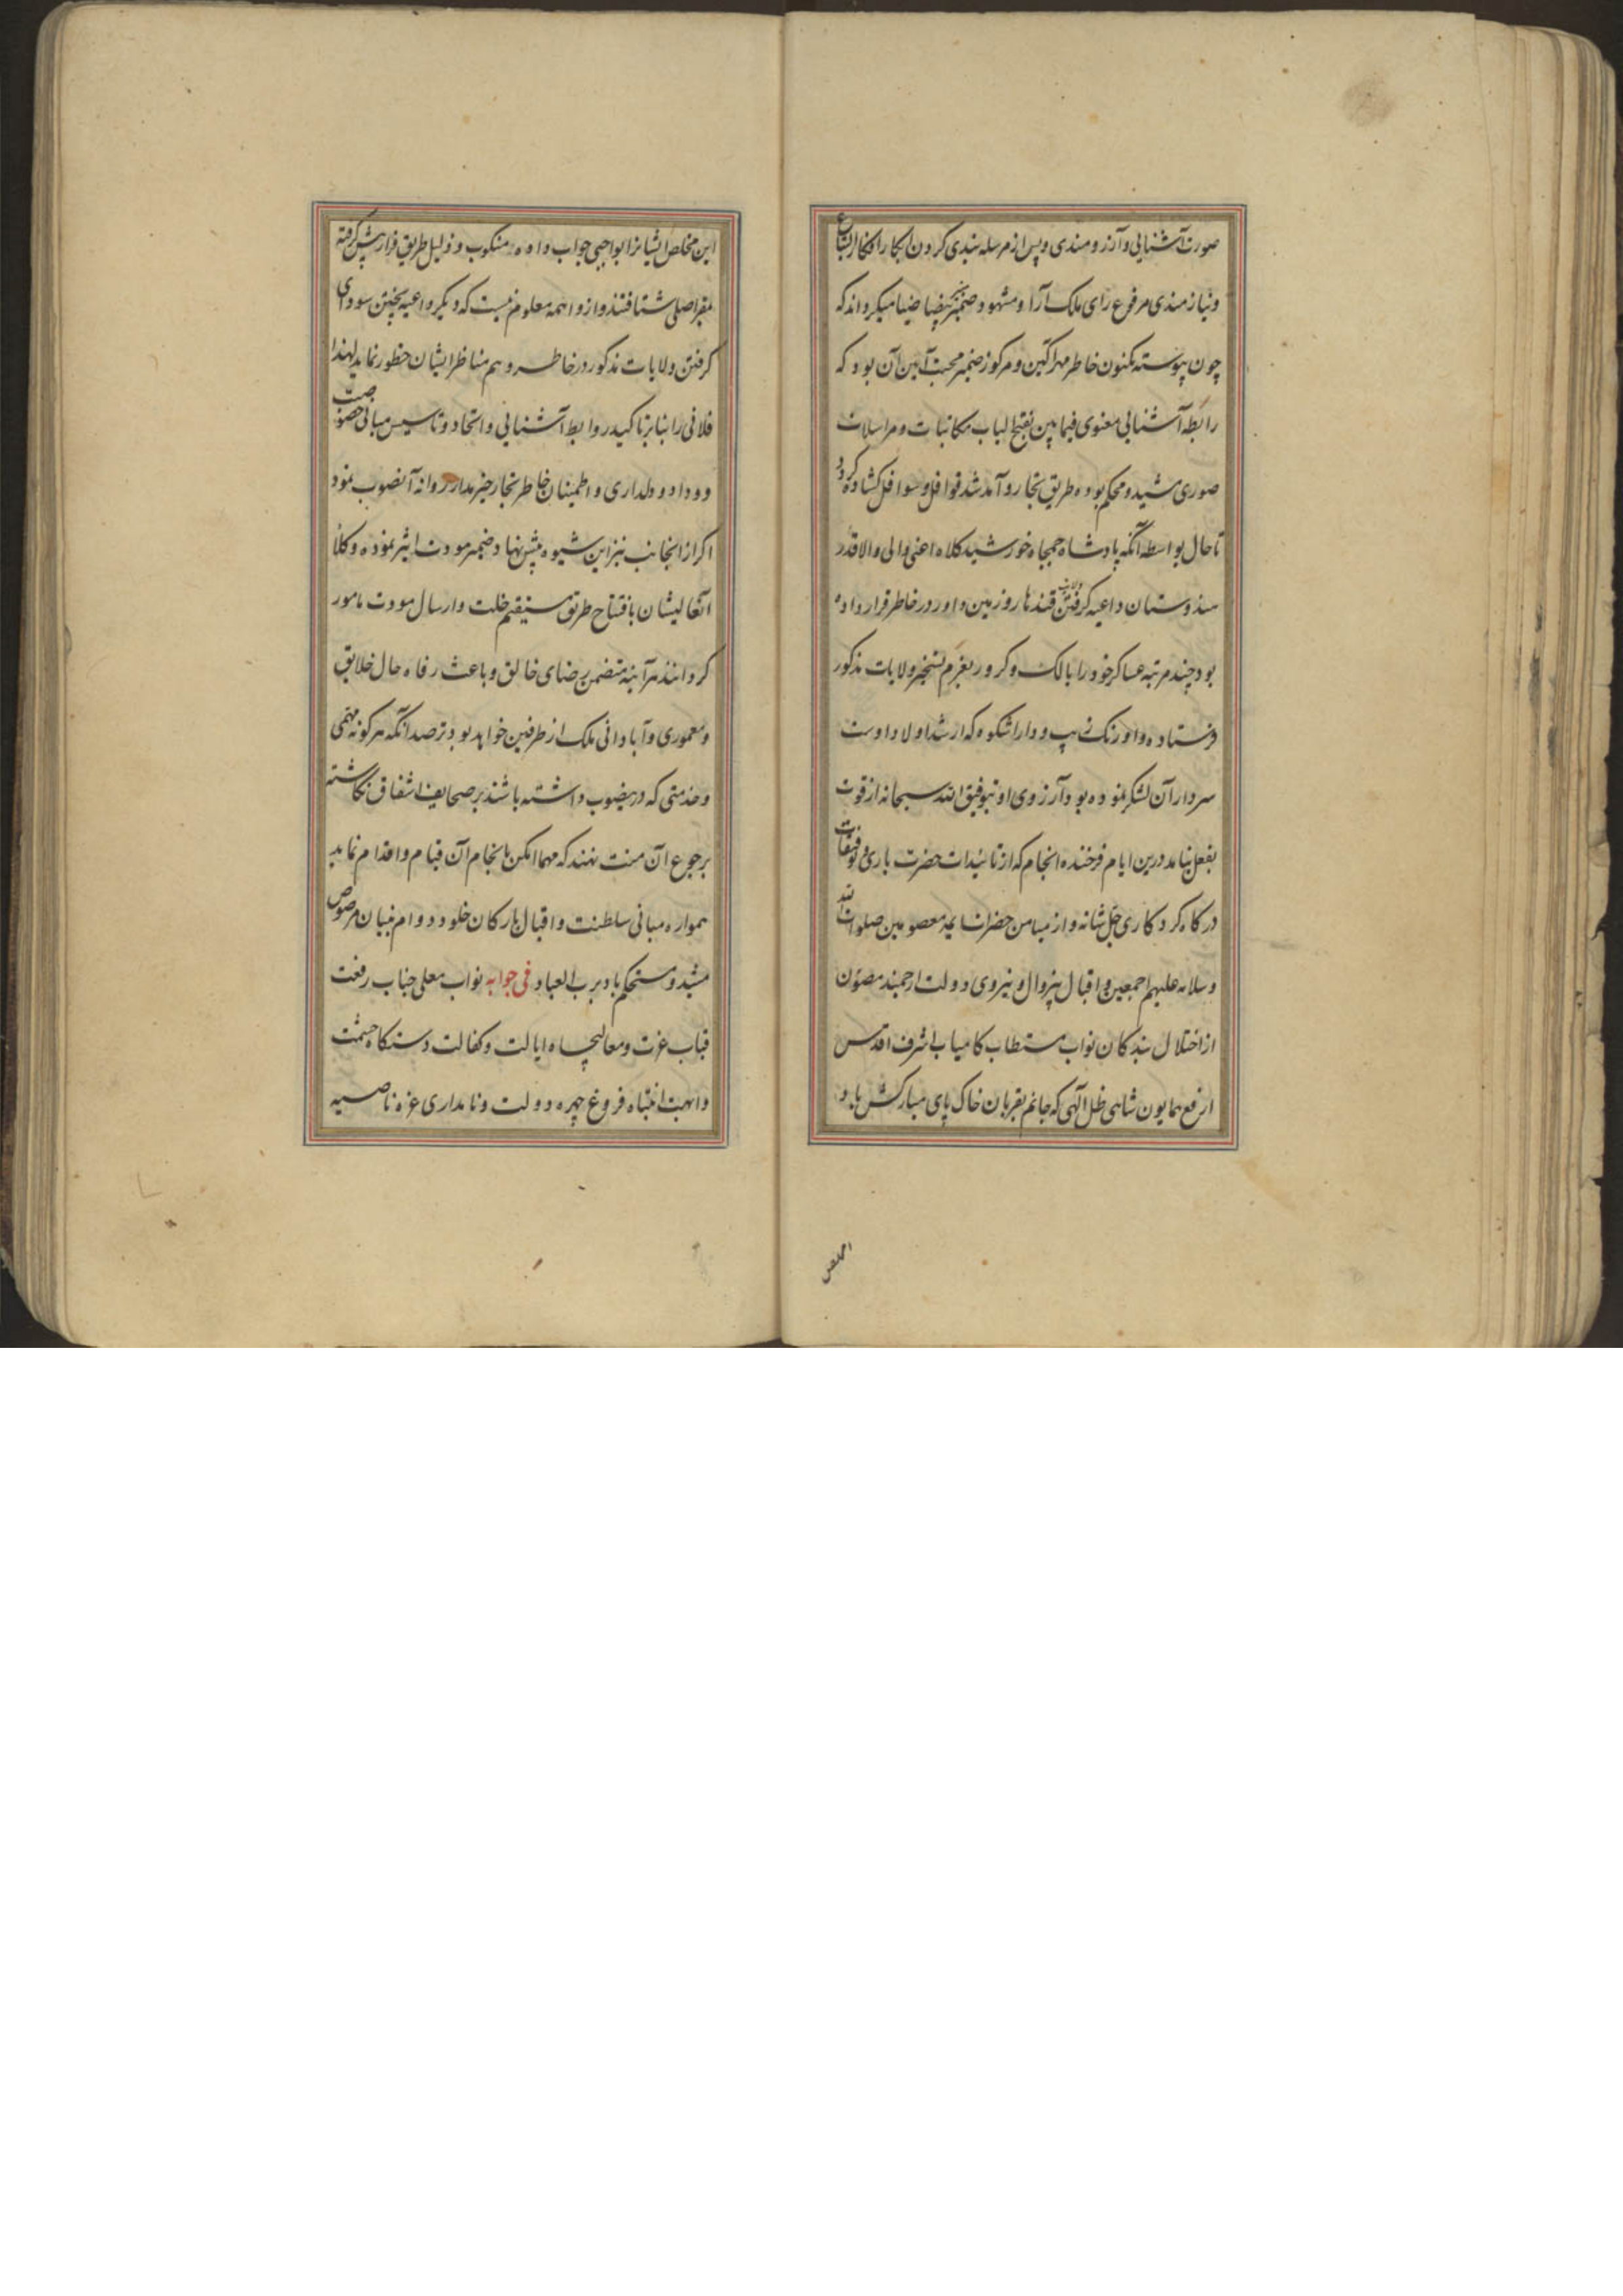 صورت آشنایی و آرزومندی و پس از مرسله بندی کردن ابکار افکار
و نیازمندی مرفوع رای ملک آرا و مشهود ضمیر بیضا ضیا میکرداند که
چون پیوسته مکنون خاطر مهرآکین و مرکوز ضمیر محبت آیین آن بود که
رابطه آشنایی معنوی فیمابین بفتح الباب مکاتبات و مراسلات
صوری مشید و محکم بوده طریق تجار و آمد شد قوافل و سوافل کشاده کردد
تا حال بواسطه آنکه پادشاه جمجاه خورشید کلاه اعنی والی والاقدر
هندوستان داعیه کرفتن ولایت قندهار و زمین داور در خاطر قرار داده
بود چند مرتبه عساکر خود را با لک و کرور بعزم تسخیر ولایات مذکور
فرستاده و اورنک زیب و دارا شکوه که ارشد اولاد اوست
سردار آن لشکر نموده بود آرزوی او بتوفیق الله سبحانه از قوت
بفعل نیامد درین ایام فرخنده انجام که از تائیدات حضرت باری و توفیقات
درکاه کردکاری جل شانه و از میامن حضرات ایمه معصومین صلوات الله
و سلامه علیهم اجمعین و اقبال بیزوال و نیروی دولت ارجمند مصون
از اختلال بندکان نواب مستطاب کامیاب اشرف اقدس
ارفع همایون شاهی ظل الهی که جانم بقربان خاک پای مبارکش باد
این مخلص ایشانرا بواجبی جواب داده منکوب و ذلیل طریق فرار پیش کرفته
بمقر اصلی شتافتند و ازواهمه معلوم نیست که دیکر داعیه پختن سودای
کرفتن ولایات مذکور در خاطر و هم مناظر ایشان خطور نماید لهذا
فلانی را بنابر تاکید روابط آشنایی و اتحاد و تاسیس مبانی خصوصیت
و وداد و دلداری و اطمینان خاطر تجار خیر مدار روانه آنصوب نمود
اکر از انجانب نیز این شیوه پیش نهاد ضمیر مودت اثر نموده وکلا
آنعالیشان بافتتاح طریق مستقیم خلت و ارسال مودت مامور
کردانند هرآینه متضمن رضای خالق و باعث رفاه حال خلایق
و معموری و آبادانی ملک از طرفین خواهد بود ترصد آنکه هرکونه مهمی
و خدمتی که درینصوب داشته باشند بر صحایف اشفاق نکاشته
برجوع آن منت نهند که مهما امکن بانجام آن قیام و اقدام نماید
همواره مبانی سلطنت و اقبال بارکان خلود و دوام بنیان مرصوص
مشید و مستحکم باد برب العباد فی جوابه نواب معلی جناب رفعت
قباب عزت و معالیجاه ایالت و کفالت دستکاه حشمت
و ابهت انتباه فروغ چهره دولت و نامداری غره ناصیه